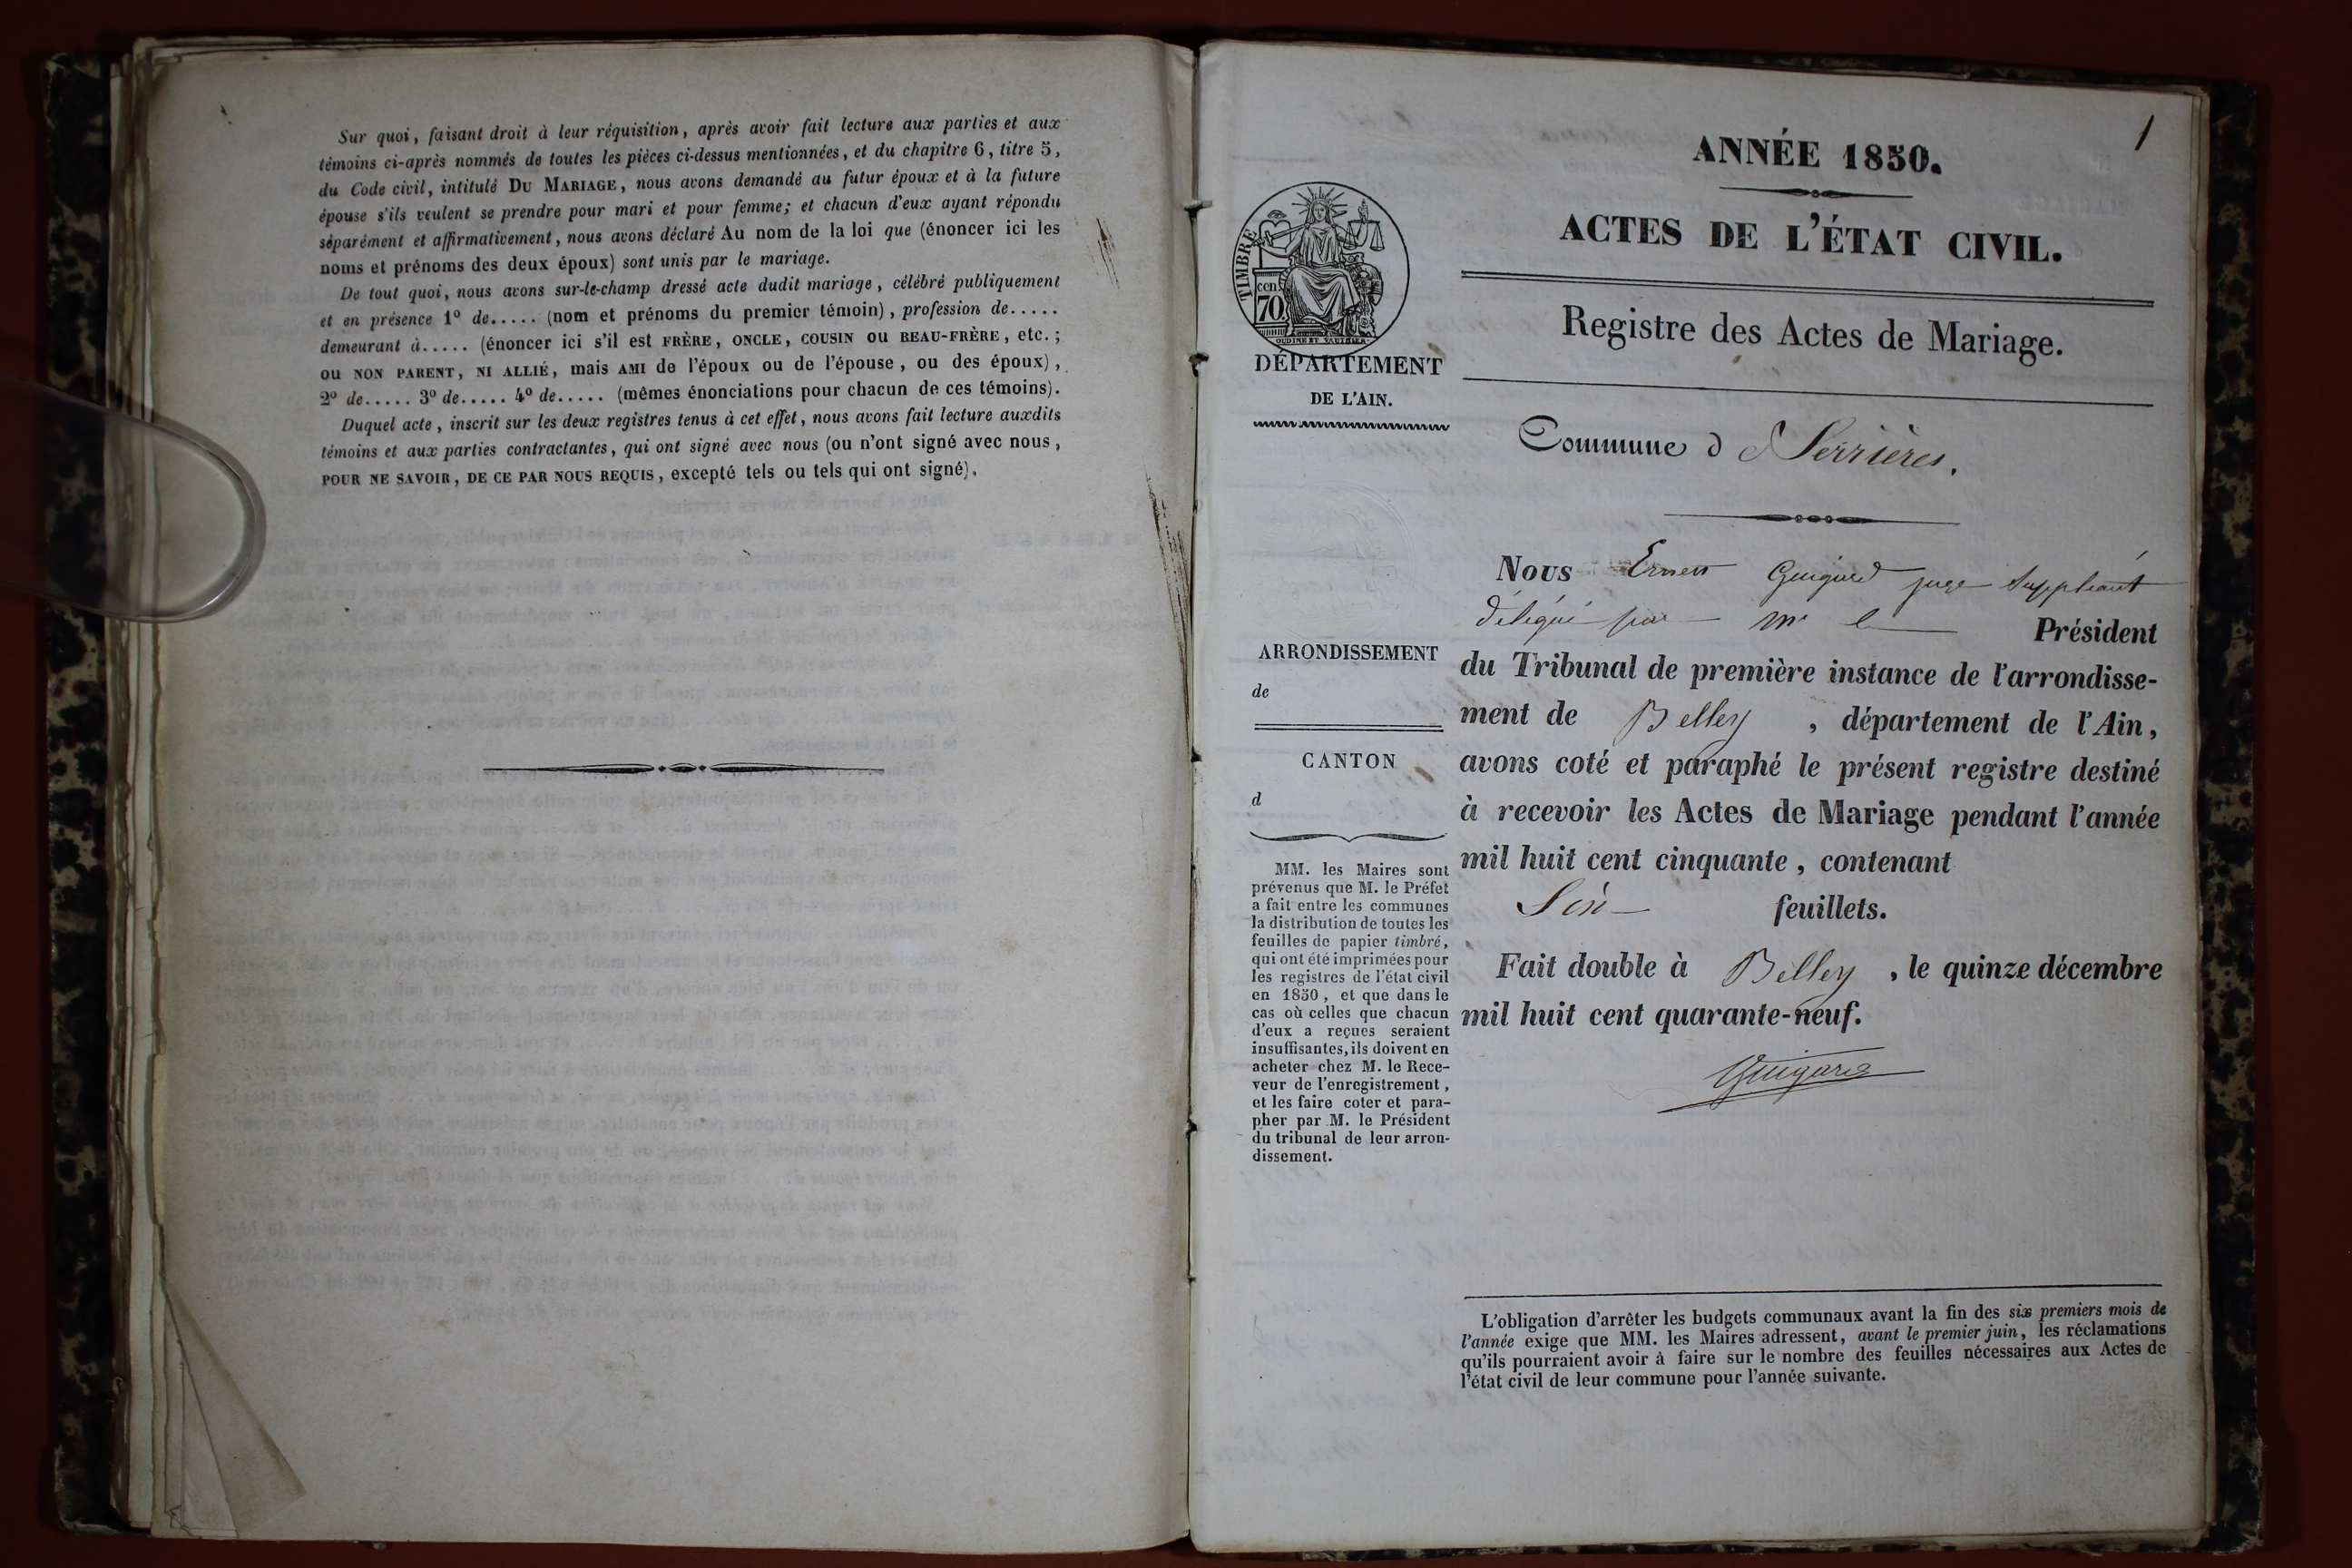 Sur quoi, faisant droit à leur réquisition, après avoir fait lecture aux parties et aux
témoins ci-après nommés de toutes les pièces ci-dessus mentionnées, et du chapitre 6, titre 5,
du Code civil, intitulé DU MARIAGE, nous avons demandé au futur époux et à la future
épouse s'ils veulent se prendre pour mari et pour femme; et chacun d'eux ayant répondu
séparément et affirmativement, nous avons déclaré Au nom de la loi que (énoncer ici les
noms et prénoms des deux époux) sont unis par le mariage.
De tout quoi, nous avons sur-le-champ dressé acte dudit mariage, célébré publiquement
et en présence 1º de..... (nom et prénoms du premier témoin), profession de.....
demeurant à..... (énoncer ici s'il est FRÈRE, ONCLE, COUSIN OU BEAU-FRÈRE, etc.;
ou NON PARENT, NI ALLIÉ, mais AMI de l'époux ou de l'épouse, ou des époux),
2º de..... 3º de..... 4º de..... (mêmes énonciations pour chacun de ces témoins).
Duquel acte, inscrit sur les deux registres tenus à cet effet, nous avons fait lecture auxdits
témoins et aux parties contractantes, qui ont signé avec nous (ou n'ont signé avec nous,
POUR NE SAVOIR, DE CE PAR NOUS REQUIS, excepté tels ou tels qui ont signé).
1
ANNÉE 1850.
ACTES DE L'ÉTAT CIVIL.
Registre des Actes de Mariage.
TIMBRE
cen.
70
OUDINÉ ET VAUTHIER
DÉPARTEMENT
DE L'AIN.
Commune d e Serrières.
Nous Ernest Guigard juge Suppléant
délégué par Mr le Président
du Tribunal de première instance de l'arrondisse-
ment de Belley, département de l'Ain,
avons coté et paraphé le présent registre destiné
à recevoir les Actes de Mariage pendant l'année
mil huit cent cinquante, contenant
Six feuillets.
Fait double à Belley, le quinze décembre
mil huit cent quarante-neuf.
Guigard
ARRONDISSEMENT
de
CANTON
d
MM. les Maires sont
prévenus que M. le Préfet
a fait entre les communes
la distribution de toutes les
feuilles de papier timbré,
qui ont été imprimées pour
les registres de l'état civil
en 1850, et que dans le
cas où celles que chacun
d'eux a reçues seraient
insuffisantes, ils doivent en
acheter chez M. le Rece-
veur de l'enregistrement,
et les faire coter et para-
pher par M. le Président
du tribunal de leur arron-
dissement.
L'obligation d'arrêter les budgets communaux avant la fin des six premiers mois de
l'année exige que MM. les Maires adressent, avant le premier juin, les réclamations
qu'ils pourraient avoir à faire sur le nombre des feuilles nécessaires aux Actes de
l'état civil de leur commune pour l'année suivante.